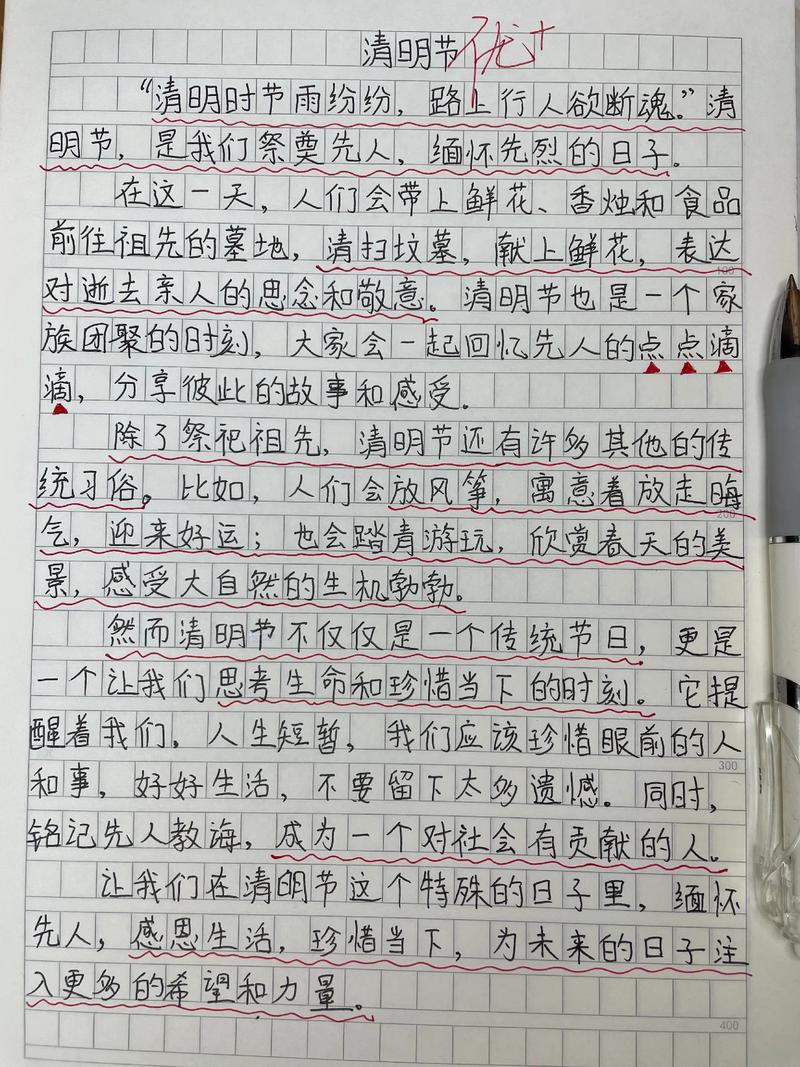 清明节 优+
“清明时节雨纷纷，路上行人欲断魂。”清
明节，是我们祭奠先人，缅怀先烈的日子。
在这一天，人们会带上鲜花、香烛和食品
前往祖先的墓地，清扫坟墓，献上鲜花，表达
100
对逝去亲人的思念和敬意。清明节也是一个家
族团聚的时刻，大家会一起回忆先人的点点滴
滴，分享彼此的故事和感受。
除了祭祀祖先，清明节还有许多其他的传
统习俗。比如，人们会放风筝，寓意着放走晦
200
气，迎来好运；也会踏青游玩，欣赏春天的美
景，感受大自然的生机勃勃。
然而清明节不仅仅是一个传统节日，更是
一个让我们思考生命和珍惜当下的时刻。它提
醒着我们，人生短暂，我们应该珍惜眼前的人
300
和事，好好生活，不要留下太多遗憾。同时，
铭记先人教诲，成为一个对社会有贡献的人。
让我们在清明节这个特殊的日子里，缅怀
先人，感恩生活，珍惜当下，为未来的日子注
入更多的希望和力量。
400